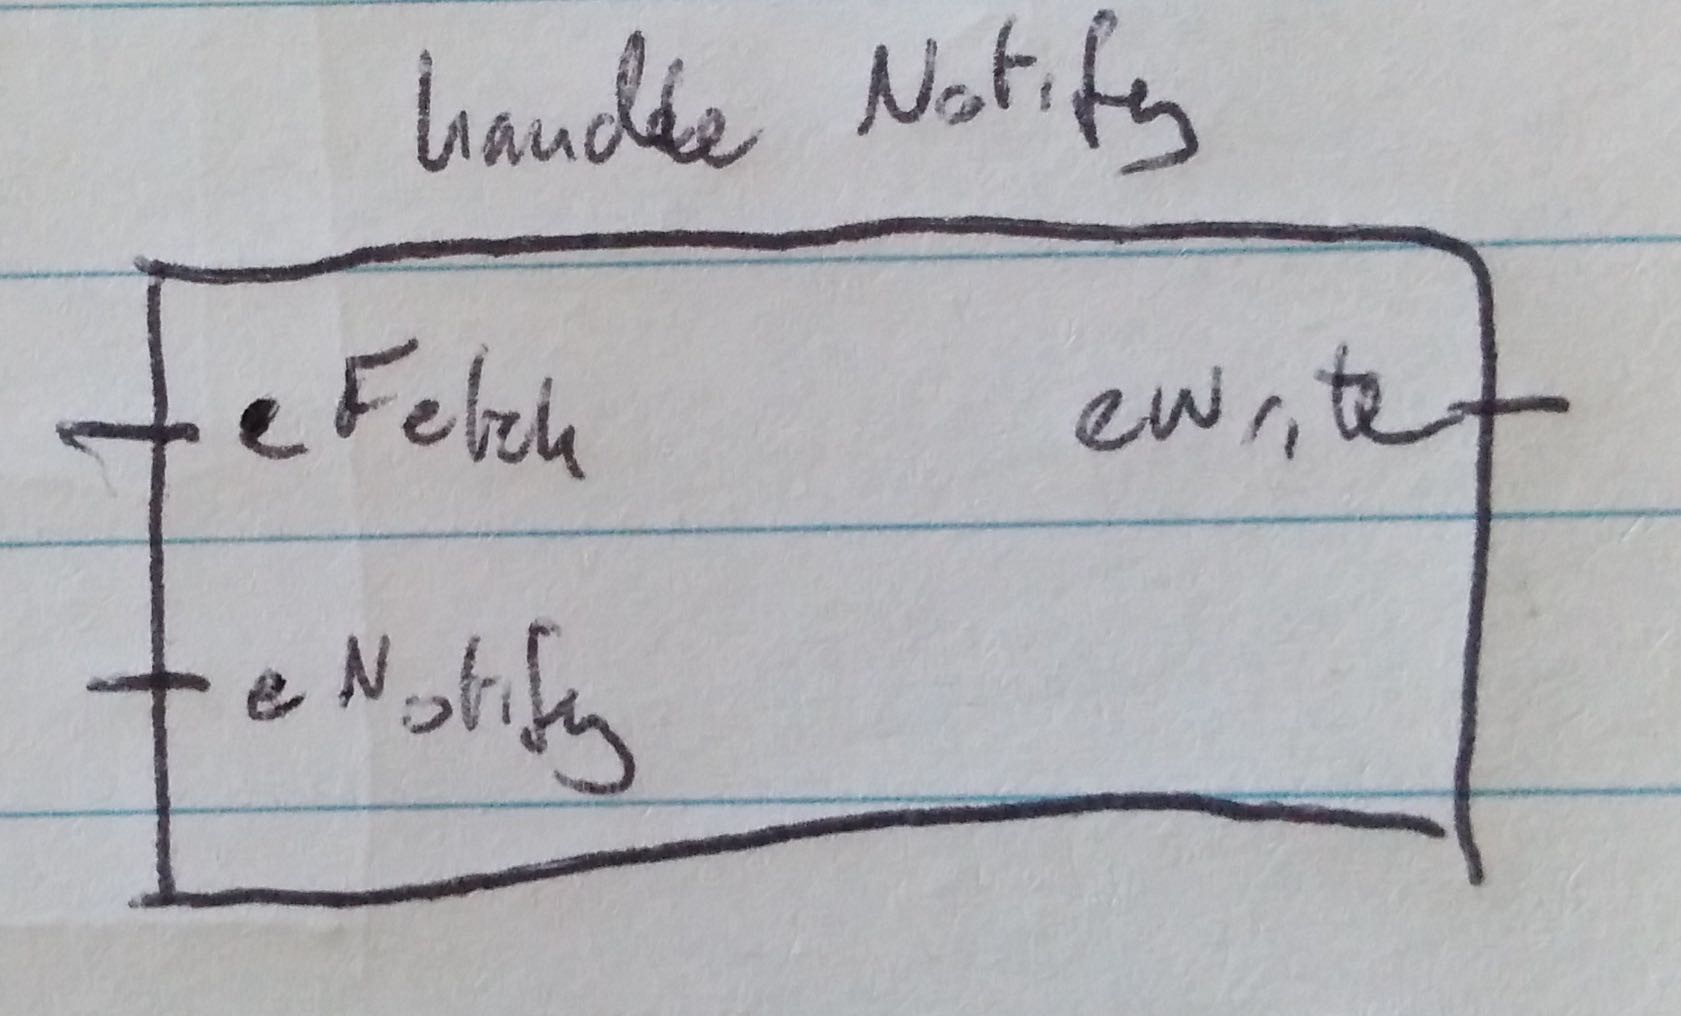 handle Notify
eFetch
eWrite
eNotify